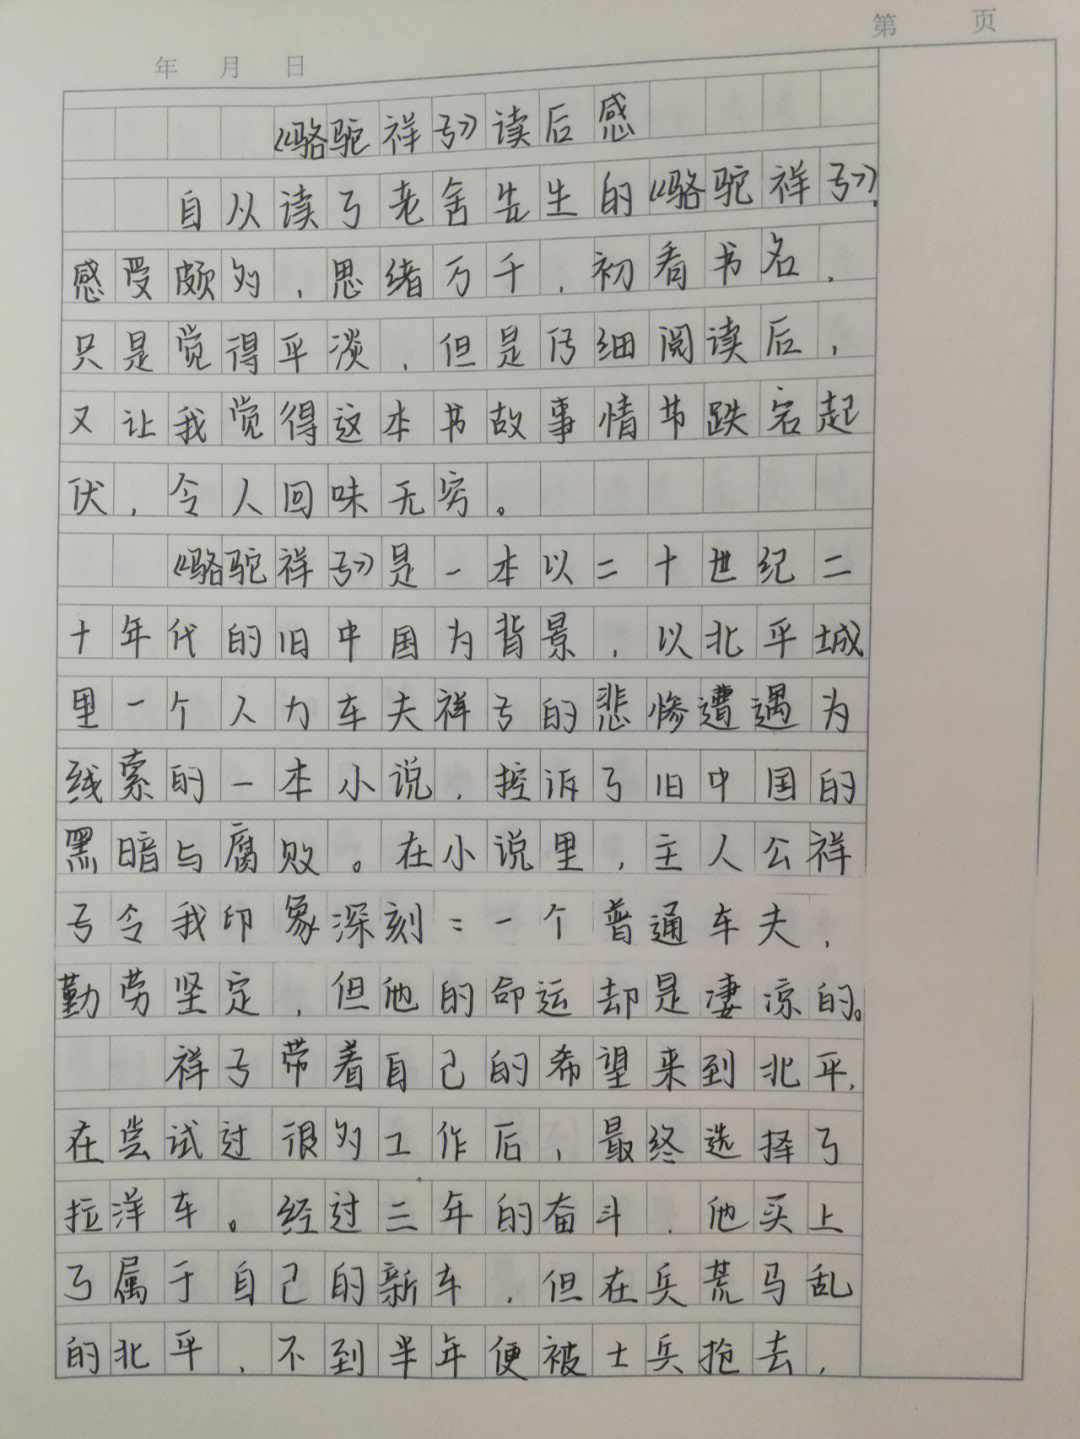 第 页
年 月 日
《骆驼祥子》读后感
自从读了老舍先生的《骆驼祥子》,
感受颇多,思绪万千,初看书名,
只是觉得平淡,但是仔细阅读后,
又让我觉得这本书故事情节跌宕起
伏,令人回味无穷。
《骆驼祥子》是一本以二十世纪二
十年代的旧中国为背景,以北平城
里一个人力车夫祥子的悲惨遭遇为
线索的一本小说,控诉了旧中国的
黑暗与腐败。在小说里,主人公祥
子令我印象深刻:一个普通车夫,
勤劳坚定,但他的命运却是凄凉的。
祥子带着自己的希望来到北平,
在尝试过很多工作后,最终选择了
拉洋车。经过三年的奋斗,他买上
了属于自己的新车,但在兵荒马乱
的北平,不到半年便被士兵抢去,